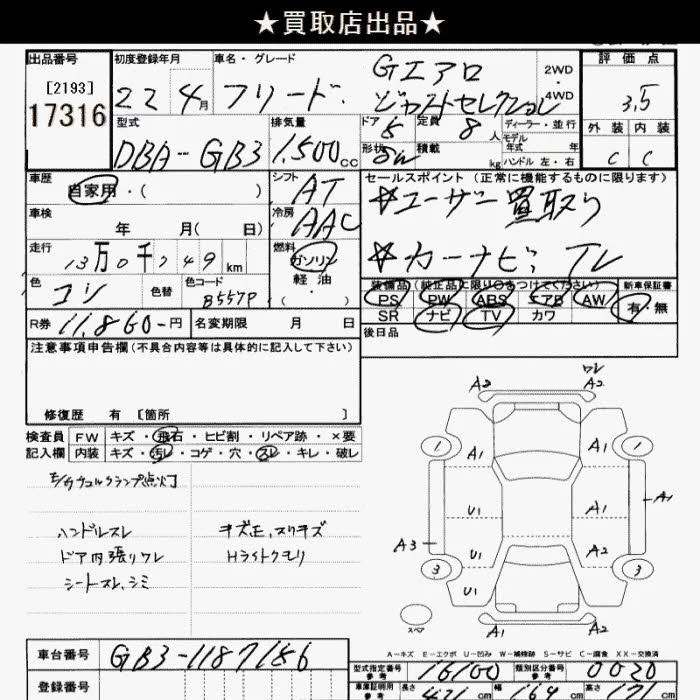 ★買取店出品★
出品番号 初度登録年月 車名・グレード Gエアロ 2WD・4WD 評価点
[2193] 22 4月 フリード ジャストセレクション 3.5
17316
型式 排気量 ドア 定員 ディーラー・並行 外装 内装
DBA-GB3 1,500cc 5 8人 モデル年式 年 C C
形状 積載 kg ハンドル 左・右
車歴 シフト セールスポイント(正常に機能するものに限ります)
自家用・( ) AT ☆ユーザー買取り
車検 年 月( 日) 冷房 AAC
走行 13万0千749km 燃料 ガソリン ☆カーナビ、TV
軽油・( )
色 コン 色替 色コード B557P 装備品(純正品に限り○をつけてください) 新車保証書
PS PW ABS エアB AW 有・無
R券 11,860-円 名変期限 月 日 SR ナビ TV カワ
後日品
注意事項申告欄(不具合内容等は具体的に記入して下さい)
修復歴 有 [箇所 ]
検査員 FW キズ・飛石・ヒビ割・リペア跡・×要
記入欄 内装 キズ・汚レ・コゲ・穴・スレ・キレ・破レ
ハンドルスレ キズ正、スリキズ
ドア内張りワレ Hライトクモリ
シートスレ、シミ
ワレ
A2 A2
1 A1 A1 1
U1 A1 A1
A3 U1 A2
3 U1 3
A1 A2
スペア
A-キズ E-エクボ U-凹み W-補修跡 S-サビ C-腐食 XX-交換済
車台番号 GB3-1187186
型式指定番号 参考 16100 類別区分番号 参考 0020
登録番号 車庫証明用 参考 長さ 421cm 幅 169cm 高さ 171cm